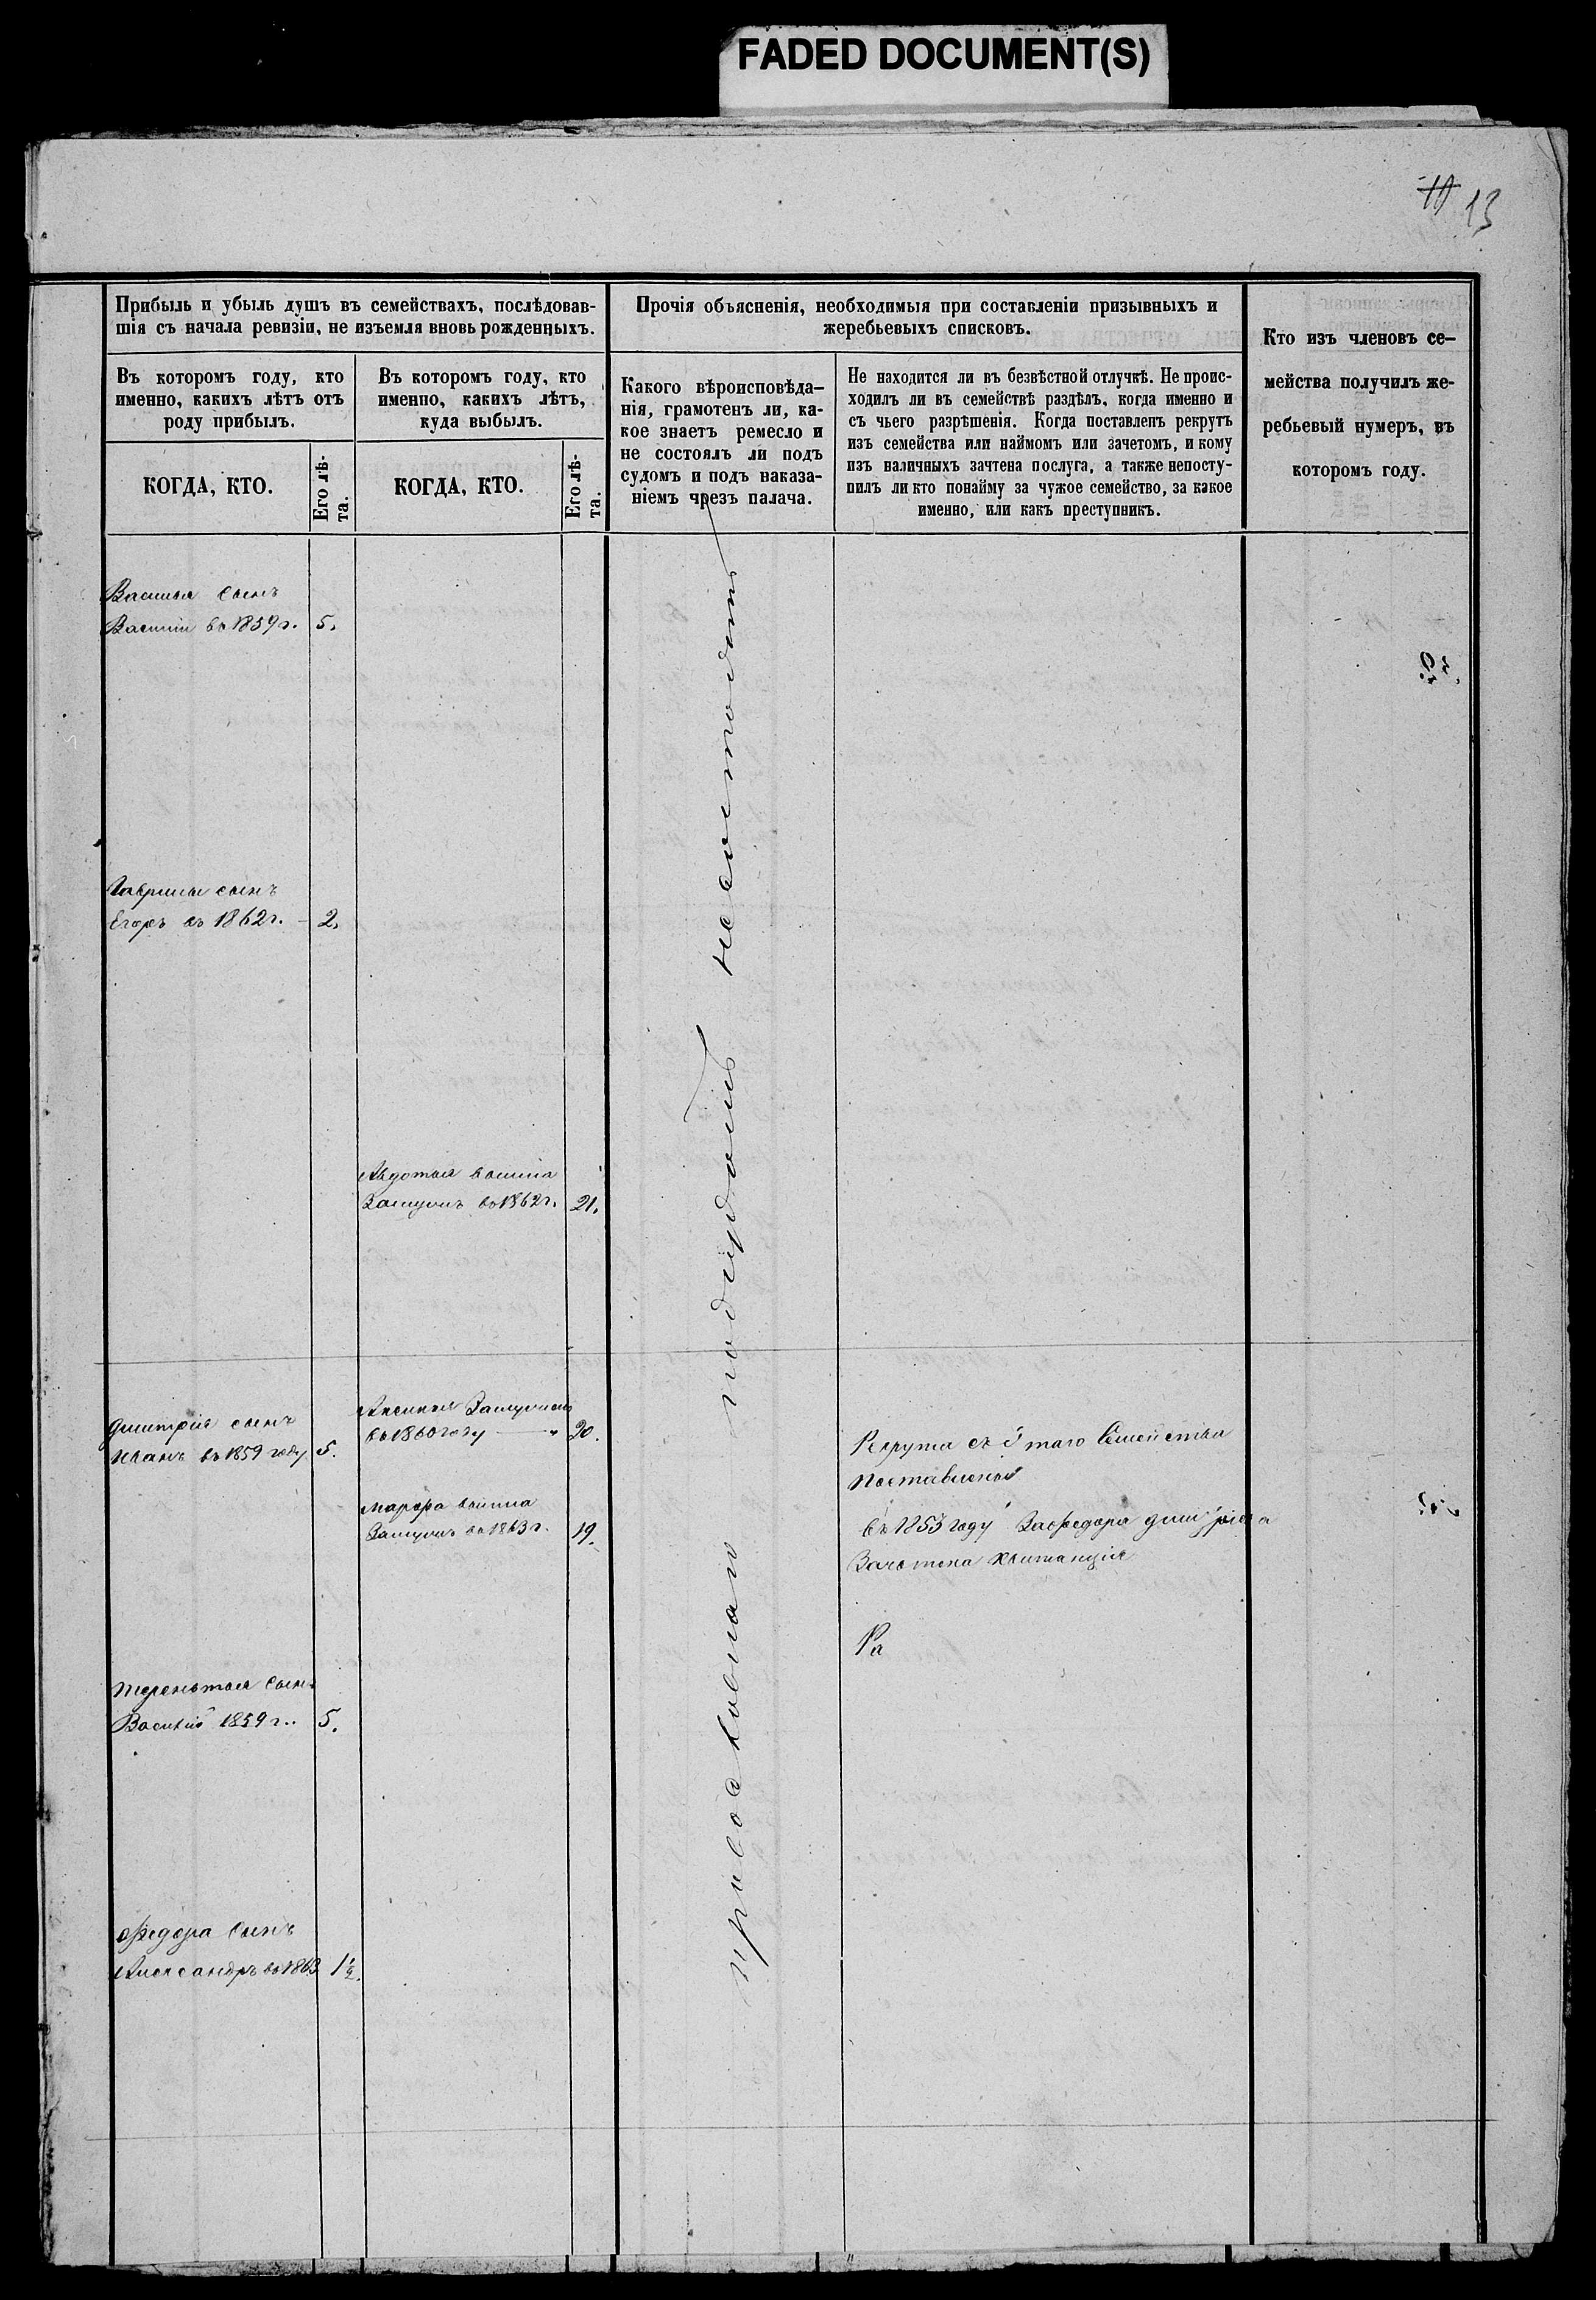 FADED DOCUMENT(S)
10 13
Прибыль и убыль душъ въ семействахъ, послѣдовав-
шія съ начала ревизіи, не изъемля вновь рожденныхъ.
Прочія объясненія, необходимыя при составленіи призывныхъ и
жеребьевыхъ списковъ.
Кто изъ членовъ се-
мейства получилъ же-
ребьевый нумеръ, въ
которомъ году.
Въ которомъ году, кто
именно, какихъ лѣтъ отъ
роду прибылъ.
Въ которомъ году, кто
именно, какихъ лѣтъ,
куда выбылъ.
Какого вѣроисповѣда-
нія, грамотенъ ли, ка-
кое знаетъ ремесло и
не состоялъ ли подъ
судомъ и подъ наказа-
ніемъ чрезъ палача.
Не находится ли въ безвѣстной отлучкѣ. Не проис-
ходилъ ли въ семействѣ раздѣлъ, когда именно и
съ чьего разрѣшенія. Когда поставленъ рекрутъ
изъ семейства или наймомъ или зачетомъ, и кому
изъ наличныхъ зачтена послуга, а также непосту-
пилъ ли кто понайму за чужое семейство, за какое
именно, или какъ преступникъ.
КОГДА, КТО.
Его лѣ-
та.
КОГДА, КТО.
Его лѣ-
та.
Василья сынъ
Василій въ 1859 г. 5.
Гаврилы сынъ
Егоръ въ 1862 г. 2.
Авдотья вышла
Замужъ въ 1862 г. 21.
Дмитрія сынъ
Иванъ въ 1859 году 5.
Аксинья Замужъ
въ 1860 году 20.
Марфа вышла
Замужъ въ 1863 г. 19.
Рекрута съ этаго Семейства
поставлены
въ 1853 году За Федора
Зачтена квитанція
Ра
Терентья сынъ
Василій 1859 г. 5.
Федора сынъ
Александръ въ 1863 1½.
православнаго подсудомъ несостоитъ